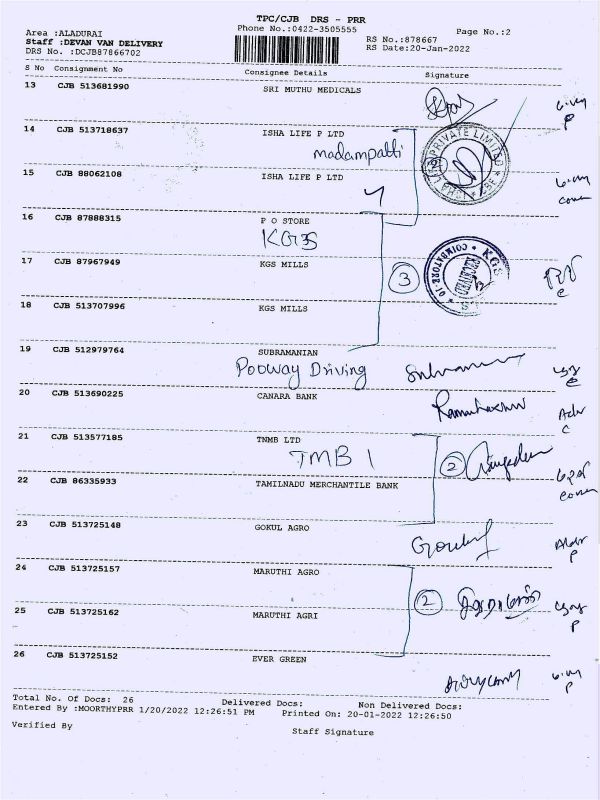 TPC/CJB DRS - PRR
Phone No.:0422-3505555
Page No.:2
Area :ALADURAI
Staff :DEVAN VAN DELIVERY
DRS No. :DCJB87866702
RS No.:878667
RS Date:20-Jan-2022
S No Consignment No Consignee Details Signature
13 CJB 513681990 SRI MUTHU MEDICALS
14 CJB 513718637 ISHA LIFE P LTD
madampatti
15 CJB 88062108 ISHA LIFE P LTD
16 CJB 87888315 P O STORE
KGS
17 CJB 87967949 KGS MILLS
3
18 CJB 513707996 KGS MILLS
19 CJB 512979764 SUBRAMANIAN
Pooway Driving
20 CJB 513690225 CANARA BANK
21 CJB 513577185 TNMB LTD
TMB 1
2
22 CJB 86335933 TAMILNADU MERCHANTILE BANK
23 CJB 513725148 GOKUL AGRO
24 CJB 513725157 MARUTHI AGRO
2
25 CJB 513725162 MARUTHI AGRI
26 CJB 513725152 EVER GREEN
Total No. Of Docs: 26 Delivered Docs: Non Delivered Docs:
Entered By :MOORTHYPRR 1/20/2022 12:26:51 PM Printed On: 20-01-2022 12:26:50
Verified By
Staff Signature